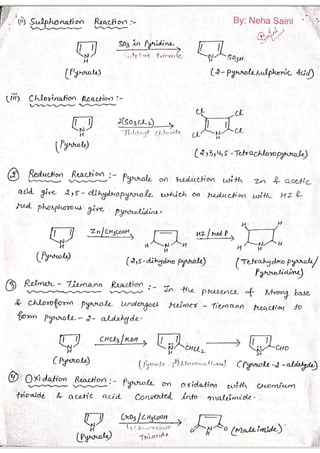 (ii) Sulphonation Reaction :-
By: Neha Saini
SO3 in Pyridine
Sulphur Trioxide
N
H
N
H
SO3H
(Pyrrole)
(2-pyrrolesulphonic Acid)
(iii) Chlorination Reaction :-
2(SO2Cl2)
Thionyl chloride
N
H
Cl
Cl
Cl
N
H
Cl
(Pyrrole)
(2,3,4,5-Tetrachloropyrrole)
② Reduction Reaction :- Pyrrole on reduction with Zn & acetic
acid give 2,5-dihydropyrrole which on reduction with HI &
red phosphorous give pyrrolidine.
Zn/CH3COOH
HI/red P
N
H
H
N
H
H
H
H
H
N
H
H
(Pyrrole)
(2,5-dihydro pyrrole)
(Tetrahydro pyrrole/
Pyrrolidine)
③ Reimer-Tiemann Reaction :- In the presence of strong base
& chloroform pyrrole undergoes reimer-Tiemann reaction to
form pyrrole-2-aldehyde.
CHCl3/KOH
N
H
N
H
CHCl2
N
H
CHO
(Pyrrole)
(Pyrrole-2-aldehyde)
④ Oxidation Reaction :- Pyrrole on oxidation with chromium
trioxide & acetic acid converted into maleimide.
CrO3/CH3COOH
Trioxide
N
H
O
N
H
O
(Pyrrole)
(Maleimide)